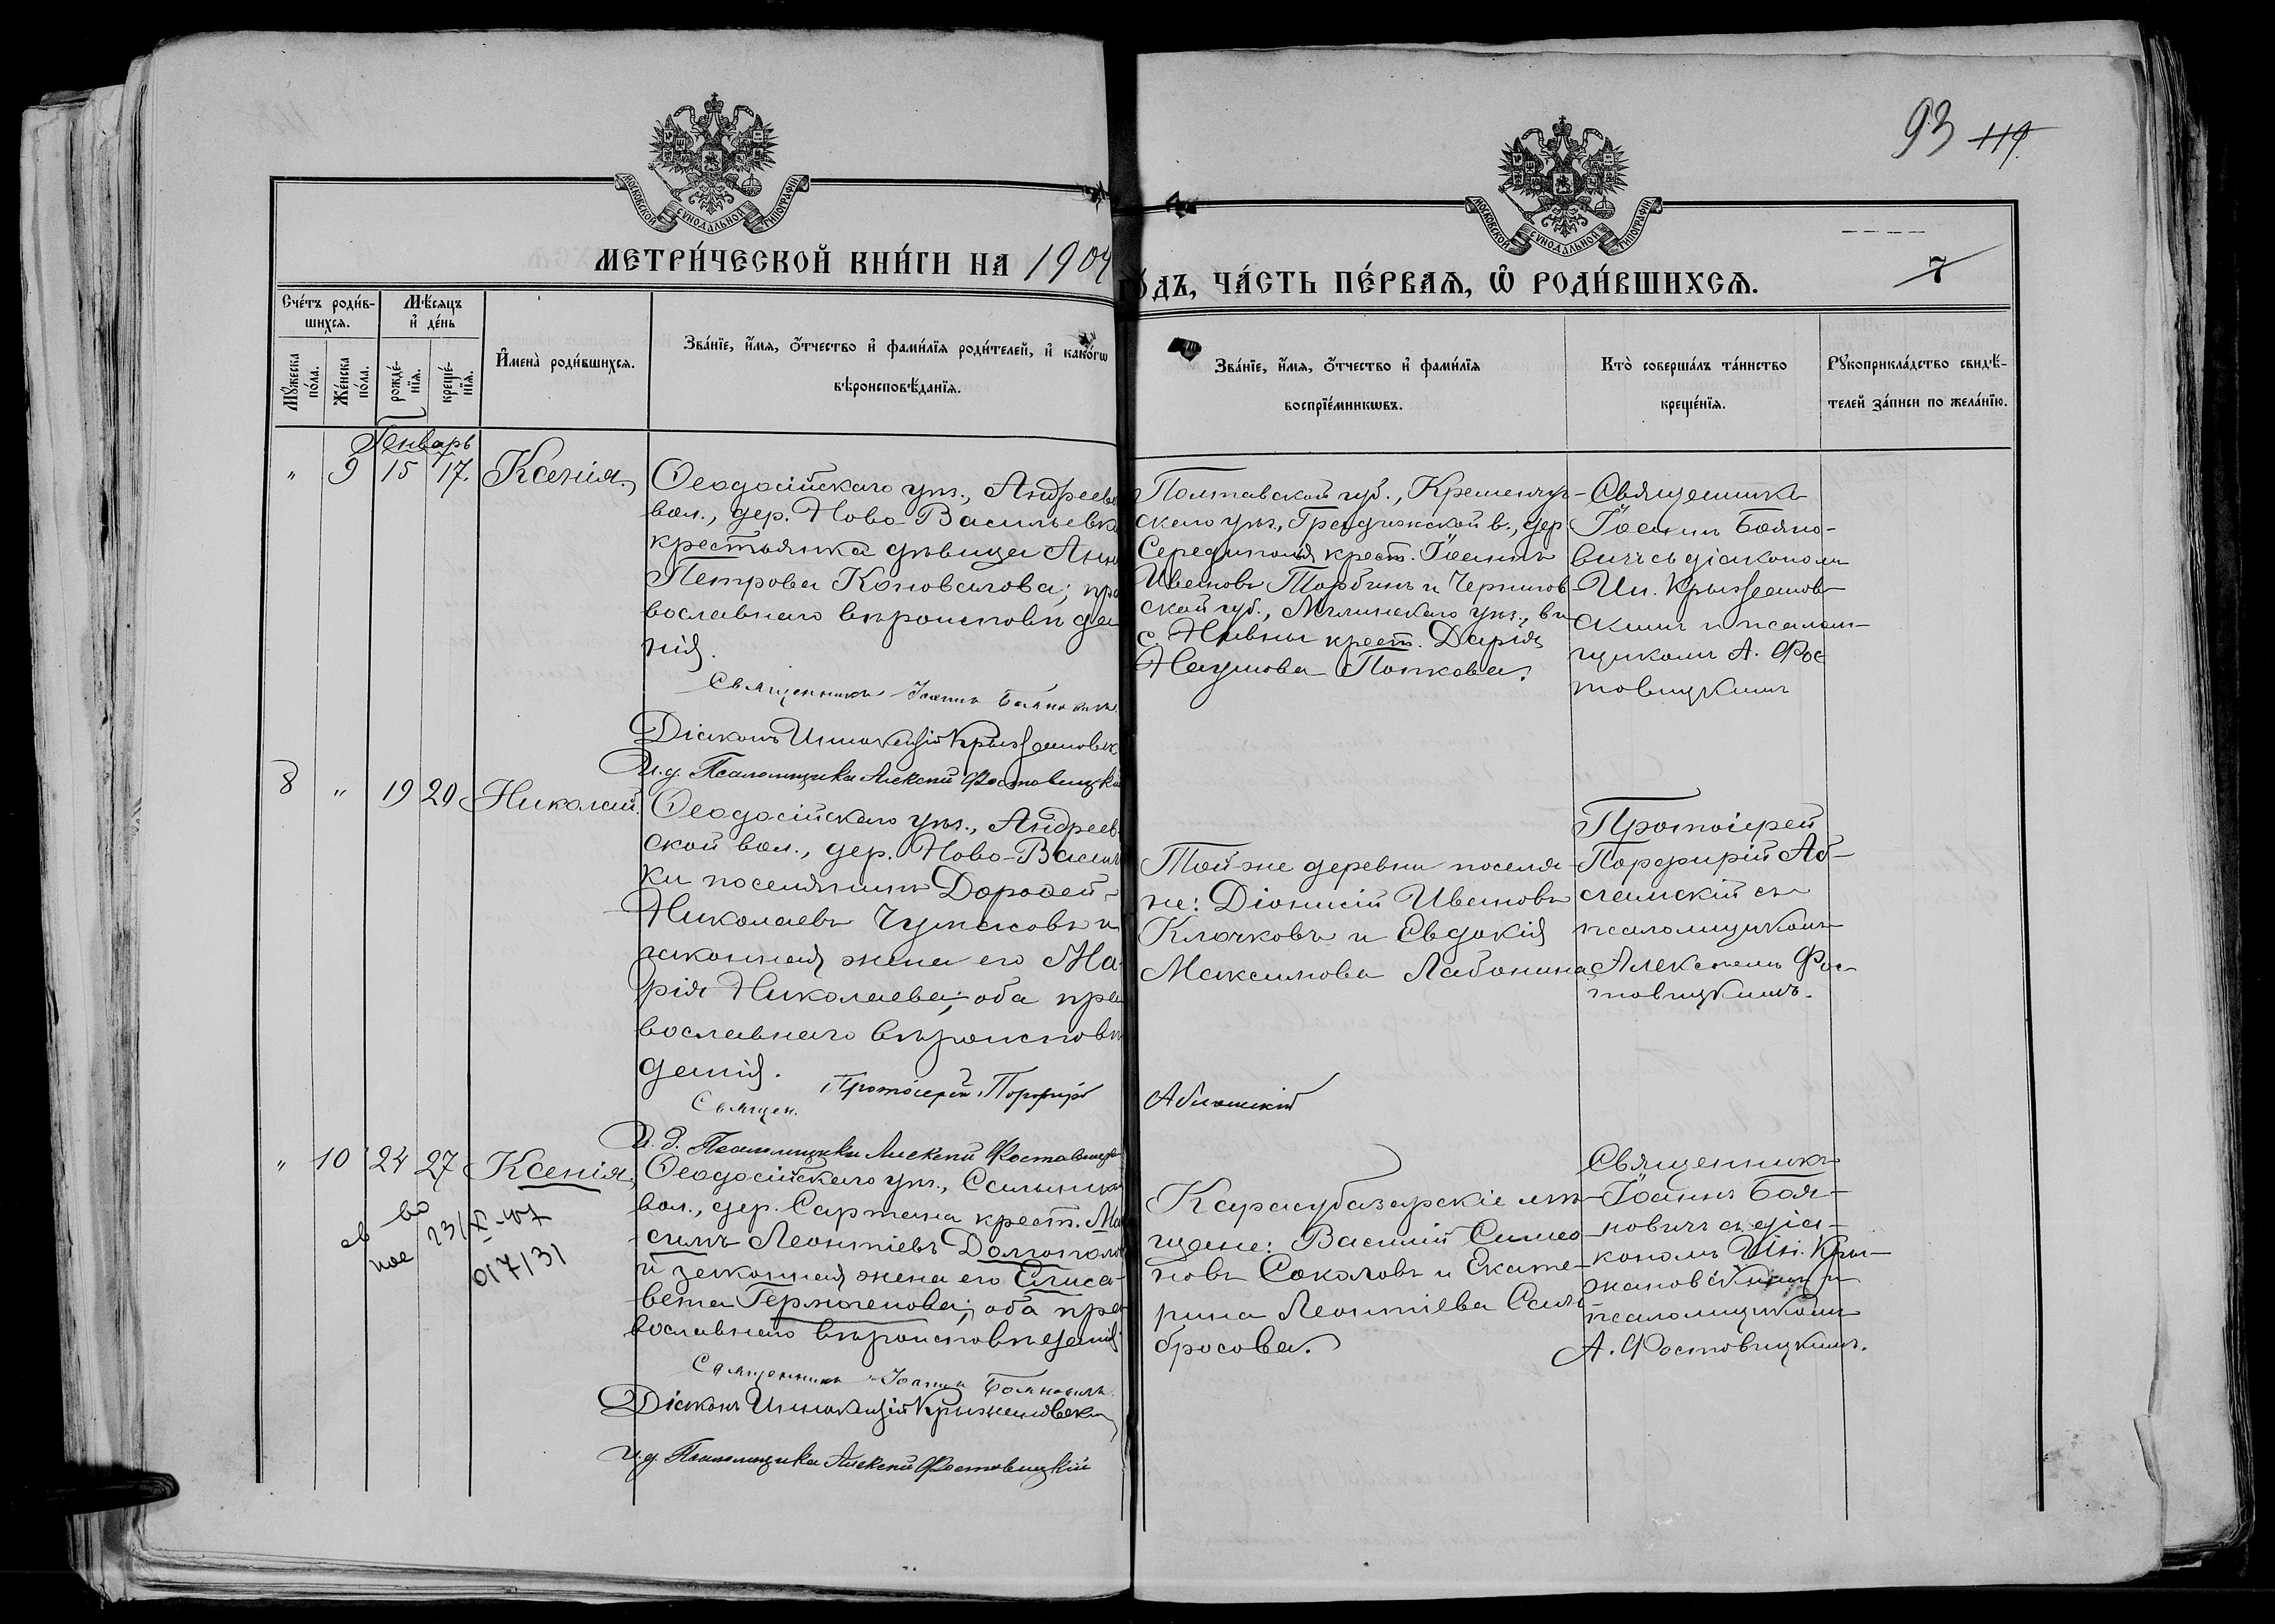 93 119
МОСКОВСКОЙ СѴНОДАЛЬНОЙ ТИПОГРАФІИ
МОСКОВСКОЙ СѴНОДАЛЬНОЙ ТИПОГРАФІИ
МЕТРИ́ЧЕСКОЙ КНИ́ГИ НА 1904
ГО́ДЪ, ЧА́СТЬ ПЕ́РВАѦ, Ѡ҆ РОДИ́ВШИХСѦ.
7
Сче́тъ роди́в-
шихсѧ.
Мꙋ́жеска
по́ла.
Же́нска
по́ла.
Мѣ́сѧцъ
и҆ де́нь
рожде́-
нїѧ.
креще́-
нїѧ.
И҆мена̀ роди́вшихсѧ.
Зва́нїе, и҆́мѧ, ѻ҆́тчество и҆ фами́лїѧ роди́телей, и҆ како́гѡ
вѣроисповѣ́данїѧ.
Зва́нїе, и҆́мѧ, ѻ҆́тчество и҆ фами́лїѧ
воспрїе́мникѡвъ.
Кто̀ соверша́лъ та́инство
креще́нїѧ.
Рꙋкоприкла́дство свидѣ́-
телей за́писи по жела́нїю.
Генварь
" 9 15 17. Ксенія.
Ѳеодосійскаго уѣз., Андреевс
вол., дер. Ново-Васильевка
крестьянка дѣвица Анна
Петрова Коновалова; пра
вославнаго вѣроисповѣда
нія.
Священникъ Іоаннъ Бояновичъ.
Діаконъ Иннокентій Крыжановск
И.д. Псаломщика Алексѣй Фостовицкій
Полтавской губ., Кременчуг-
скаго уѣз., Градижской в., дер.
крест. Іоаннъ
Ивановъ Торбинъ и Чернигов
ской губ., Мглинскаго уѣз.,
с. Нивны крест. Дарія
Наумова Попкова.
Священникъ
Іоаннъ Бояно-
вичъ съ діакономъ
Ин. Крыжанов-
скимъ и псалом-
щикомъ А. Фос
товицкимъ
8 " 19 20 Николай.
Ѳеодосійскаго уѣз., Андреев
ской вол., дер. Ново-Василь
ки поселянинъ Дороѳей
Николаевъ Чумаковъ и
законная жена его Ма-
рія Николаева; оба пра
вославнаго вѣроисповѣ
данія.
Протоіерей Порфирій
Абламскій
Священ.
И.д. Псаломщика Алексѣй Фостовицкі
Той-же деревни поселя-
не: Діонисій Ивановъ
Клочковъ и Евдокія
Максимова Лабонина
Протоіерей
Порфирій Аб-
ламскій съ
псаломщикомъ
Алексѣемъ Фос-
товицкимъ.
" 10 24 27 Ксенія.
23/X-
Ѳеодосійскаго уѣз., Салынск
вол., дер. Сартана крест. Мак
симъ Леонтіевъ Долгополов
и законная жена его Елиса-
вета Гермогенова; оба пра
вославнаго вѣроисповѣданія
Священникъ Іоаннъ Бояновичъ.
Діаконъ Иннокентій Крыжановскій
И.д. Псаломщика Алексѣй Фостовицкій
Карасубазарскіе мѣ-
щане: Василій Симео-
новъ Соколовъ и Екате-
рина Леонтіева Сали
бросова.
Священникъ
Іоаннъ Боя-
новичъ съ діа-
кономъ Ин. Кры-
жановскимъ и
псаломщикомъ
А. Фостовицкимъ.